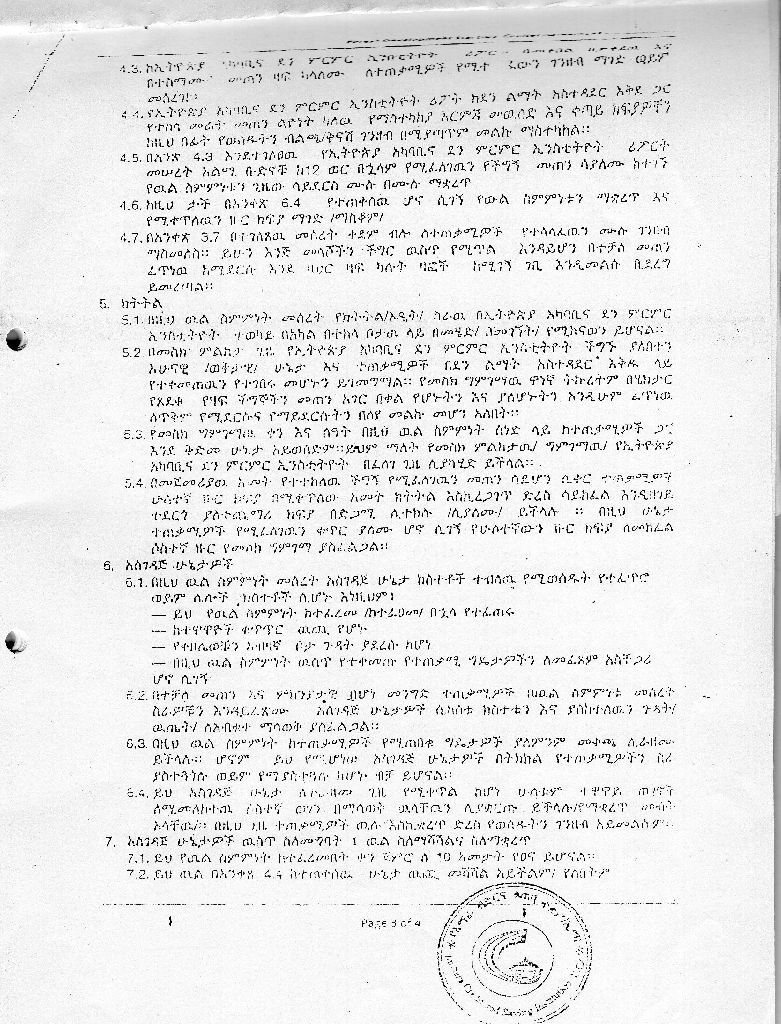 4.3. ከኢትዮጵያ አካባቢና ደን ምርምር ኢንስቲትዮት
በተስማሙ መጠን ዛፍ ካላለሙ ለተጠቃሚዎች የሚተ ገንዘብ ማገድ ወይም
መሰረዝ፡፡
4.4. የኢትዮጵያ አካባቢና ደን ምርምር ኢንስቲትዮት ሪፖት ከደን ልማት አስተዳደር እቅድ ጋር
የተከላ መሬት መጠን ልዮነት ካለዉ የማስተካከያ እርምጃ መዉሰድ እና ቀጣይ ክፍያዎችን
ከዚህ በፊት የወሰዱትን ብልጫ/ቅናሽ ገንዘብ በሚያጣጥም መልኩ ማስተካከል፡፡
4.5. በአንጽ 4.3 እንደተገለፀዉ የኢትዮጵያ አካባቢና ደን ምርምር ኢንስቲትዮት ሪፖርት
መሠረት አልሚ ቡድናቹ ከ12 ወር በኋላም የሚፈለገዉን የችግኝ መጠን ሳያለሙ ከተገኙ
የዉል ስምምነቱን ጊዜው ሳይደርስ ሙሉ በሙሉ ማቋረጥ
4.6. ከዚህ ታች በአንቀጽ 6.4 የተጠቀሰዉ ሆኖ ሲገኝ የውል ስምምነቱን ማቋረጥ እና
የሚቀጥለዉን ዙር ክፍያ ማገድ /ማስቆም/
4.7. በአንቀጽ 3.7 በተገለጸዉ መሰረት ቀደም ብሎ ለተጠቃሚዎች የተላለፈዉን ሙሉ ገንዘብ
ማስመለስ፡፡ ይሁን እንጅ መላሾችን ችግር ዉስጥ የሚጥል እንዳይሆን በተቻለ መጠን
ፈጥነዉ ለማደርሱ እንደ ባህር ዛፍ ካሉት ዛፎች ከሚገኝ ገቢ እንዲመልሱ ቢደረግ
ይመረጣል፡፡
5. ክትትል
5.1. በዚህ ዉል ስምምነት መሰረት የክትትል/ኦዲት/ ስራዉ በኢትዮጵያ አካባቢና ደን ምርምር
ኢንስቲትዮት ተወካይ በአካል በተከላ ቦታዉ ላይ በመሄድ/ በመገኘት/ የሚከናወን ይሆናል፡፡
5.2 በመስክ ምልከታ ጊዜ የኢትዮጵያ አካባቢና ደን ምርምር ኢንስቲትዮት ችግኙ ያለበትን
አሁናዊ /ወቅታዊ/ ሁኔታ እና ተጠቃሚዎች በደን ልማት አስተዳደር እቅዱ ላይ
የተቀመጠዉን የተገበሩ መሆኑን ይገመግማል፡፡ የመስክ ግምገማዉ ዋነኛ ትኩረትም በሄክታር
የጸደቁ የዛፍ ችግኞችን መጠን አገር በቀል የሆኑትን እና ያልሆኑትን እንዲሁም ፈጥነዉ
ለጥቅም የሚደርሱና የማይደርሱትን በለየ መልኩ መሆን አለበት፡፡
5.3. የመስክ ግምገማዉ ቀን እና ሰዓት በዚህ ዉል ስምምነት ሰነድ ላይ ከተጠቃሚዎች ጋር
እንደ ቅድመ ሁኔታ አይወሰድም፡፡ ይህም ማለት የመስክ ምልከታዉ/ ግምገማዉ/ የኢትዮጵያ
አካባቢና ደን ምርምር ኢንስቲትዮት በፈለገ ጊዜ ሊያካሂድ ይችላል፡፡
5.4. በመጀመሪያዉ አመት የተተከለዉ ችግኝ የሚፈለገዉን መጠን ሳይሆን ሲቀር ተጠቃሚዎች
ሁለተኛ ዙር ክፍያ በሚቀጥለው አመት ክትትል እስኪረጋገጥ ድረስ ሳይከፈል እንዲዘገይ
ተደርጎ ያለተጨማሪ ክፍያ በድጋሚ ሊተክሉ /ሊያለሙ/ ይችላሉ ፡፡ በዚህ ሁኔታ
ተጠቃሚዎች የሚፈለገዉን ቁጥር ያለሙ ሆኖ ሲገኝ የሁለተኛውን ዙር ክፍያ ለመክፈል
ሶስተኛ ዙር የመስክ ግምገማ ያስፈልጋል፡፡
6. አስገዳጅ ሁኔታዎች
6.1. በዚህ ዉል ስምምነት መሰረት አስገዳጅ ሁኔታ ክስተቶች ተብለዉ የሚወሰዱት የተፈጥሮ
ወይም ሌሎች ክስተቶች ሲሆኑ እነዚህም፤
— ይህ የዉል ስምምነት ከተፈረመ /ከተፈፀመ/ በኋላ የተፈጠሩ
— ከተዋዋዮች ቁጥጥር ዉጪ የሆኑ
— የቀበሌዎቹን አብዛኛ ቦታ ጉዳት ያደረሱ ከሆነ
— በዚህ ዉል ስምምነት ዉስጥ የተቀመጡ የተጠቃሚ ግዴታዎችን ለመፈጸም አስቸጋሪ
ሆኖ ሲገኝ
6.2. በተቻለ መጠን እና ምክንያታዊ በሆነ መንግድ ተጠቃሚዎች በዉል ስምምነቱ መሰረት
ስራዎቹን እንዳይፈጽሙ አስገዳጅ ሁኔታዎች ሲከሰቱ ክስተቱን እና ያስከተለዉን ጉዳት/
ዉጤት/ ማሳወቅ ያስፈልጋል፡፡
6.3. በዚህ ዉል ስምምነት ከተጠቃሚዎች የሚጠበቁ ግዴታዎች ያለምንም መቀጫ ሊራዘሙ
ይችላሉ፡፡ ሆኖም ይህ የሚሆነው አስገዳጅ ሁኔታዎች በትክክል የተጠቃሚዎችን ስራ
ያስተጓጎሉ ወይም የማያስተጓጉሉ ከሆኑ ብቻ ይሆናል፡፡
6.4. ይህ አስገዳጅ ሁኔታ ጊዜ የሚቀጥል ከሆነ ሁለቱም ተዋዋይ ወገኖች
ለሚመለከተዉ ሶስተኛ ወገን በማሳወቅ ዉላቸዉን ሊያቋርጡ ይችላሉ/የማቋረጥ መብት
አላቸዉ/፡፡ በዚህ ጊዜ ተጠቃሚዎች ዉሉ እስኪቋረጥ ድረስ የወሰዱትን ገንዘብ አይመልሱም፡፡
7. አስገዳጅ ሁኔታዎች ዉስጥ ስለመግባት ዉል ስለማሻሻልና ስለማቋረጥ
7.1. ይህ የዉል ስምምነት ከተፈረመበት ቀን ጀምሮ ለ 10 አመታት የፀና ይሆናል፡፡
7.2. ይህ ዉል በአንቀጽ 4.4 ከተጠቀሰዉ ሁኔታ ዉጪ መሻሻል አይችልም/ የለበትም
Page 3 of 4